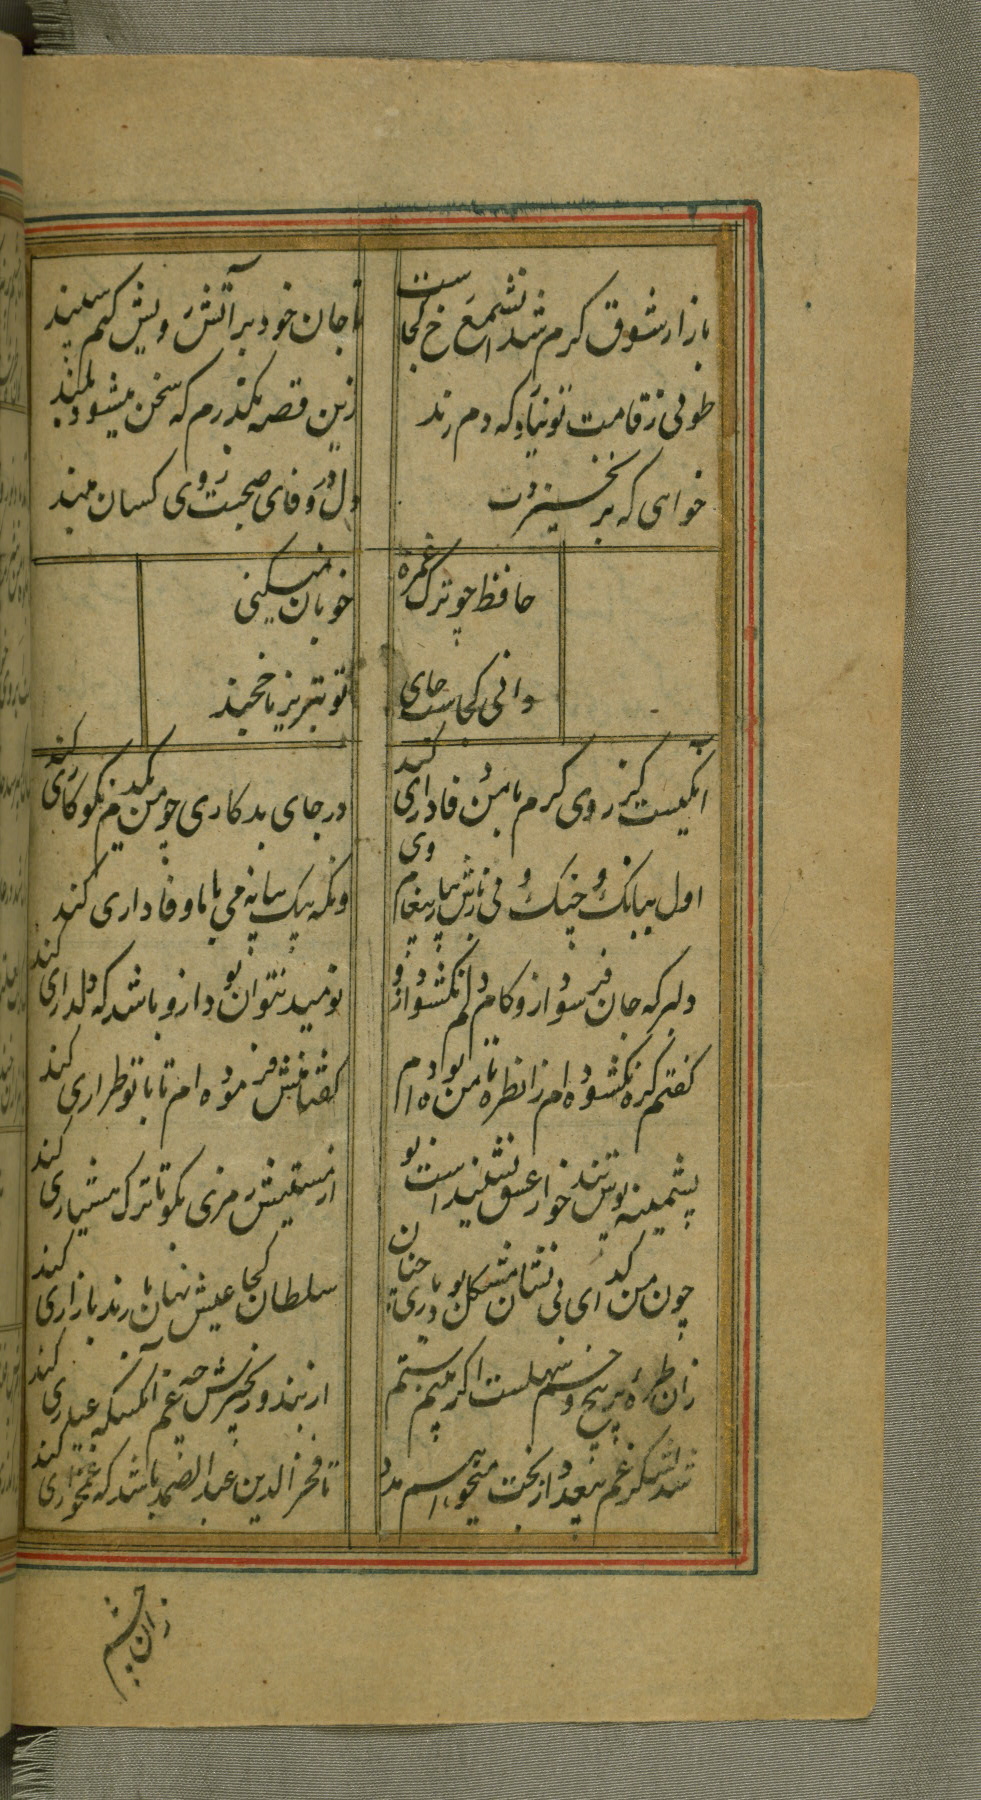 بازار شوق گرم شد آن شمع رخ کجاست
تا جان خود بر آتش رویش کنم سپند
طوفی ز قامت تو نیارد که دم زند
زین قصه بگذرم که سخن میشود بلند
خواهی که بر نخیزدت
دل در وفای صحبت رو کسان مبند
حافظ چو ترک غمزه
خوبان نمیکنی
دانی کجاست جای
تو تبریز یا خجند
آن کیست کز روی کرم با من وفاداری کند
در جای بدکاری چو من یکدم نکوکاری کند
اول ببانک چنک و نی آرد پیغام وی
وانکه بیک پیمانه می با ما وفاداری کند
دلبر که جان فرسود ازو کام دلم نکشود ازو
نومید نتوان بود ازو باشد که دلداری کند
گفتم گره نکشوده ام زان طره تا من بوده ام
گفتا منش فرموده ام تا با تو طراری کند
پشمینه پوش تندخو از عشق نشنیدست بو
از مستیش رمزی بکو تا ترک هشیاری کند
چون من گدای بی نشان مشکل بود یاری چنان
سلطان کجا عیش نهان با رند بازاری کند
زان طره پر پیچ و خم سهلست اگر بینم ستم
از بند و زنجیرش چه غم آنکس که عیاری کند
شد لشکر غم بیعدد از بخت میخواهم مدد
تا فخرالدین عبدالصمد باشد که غمخواری کند
زان چشم